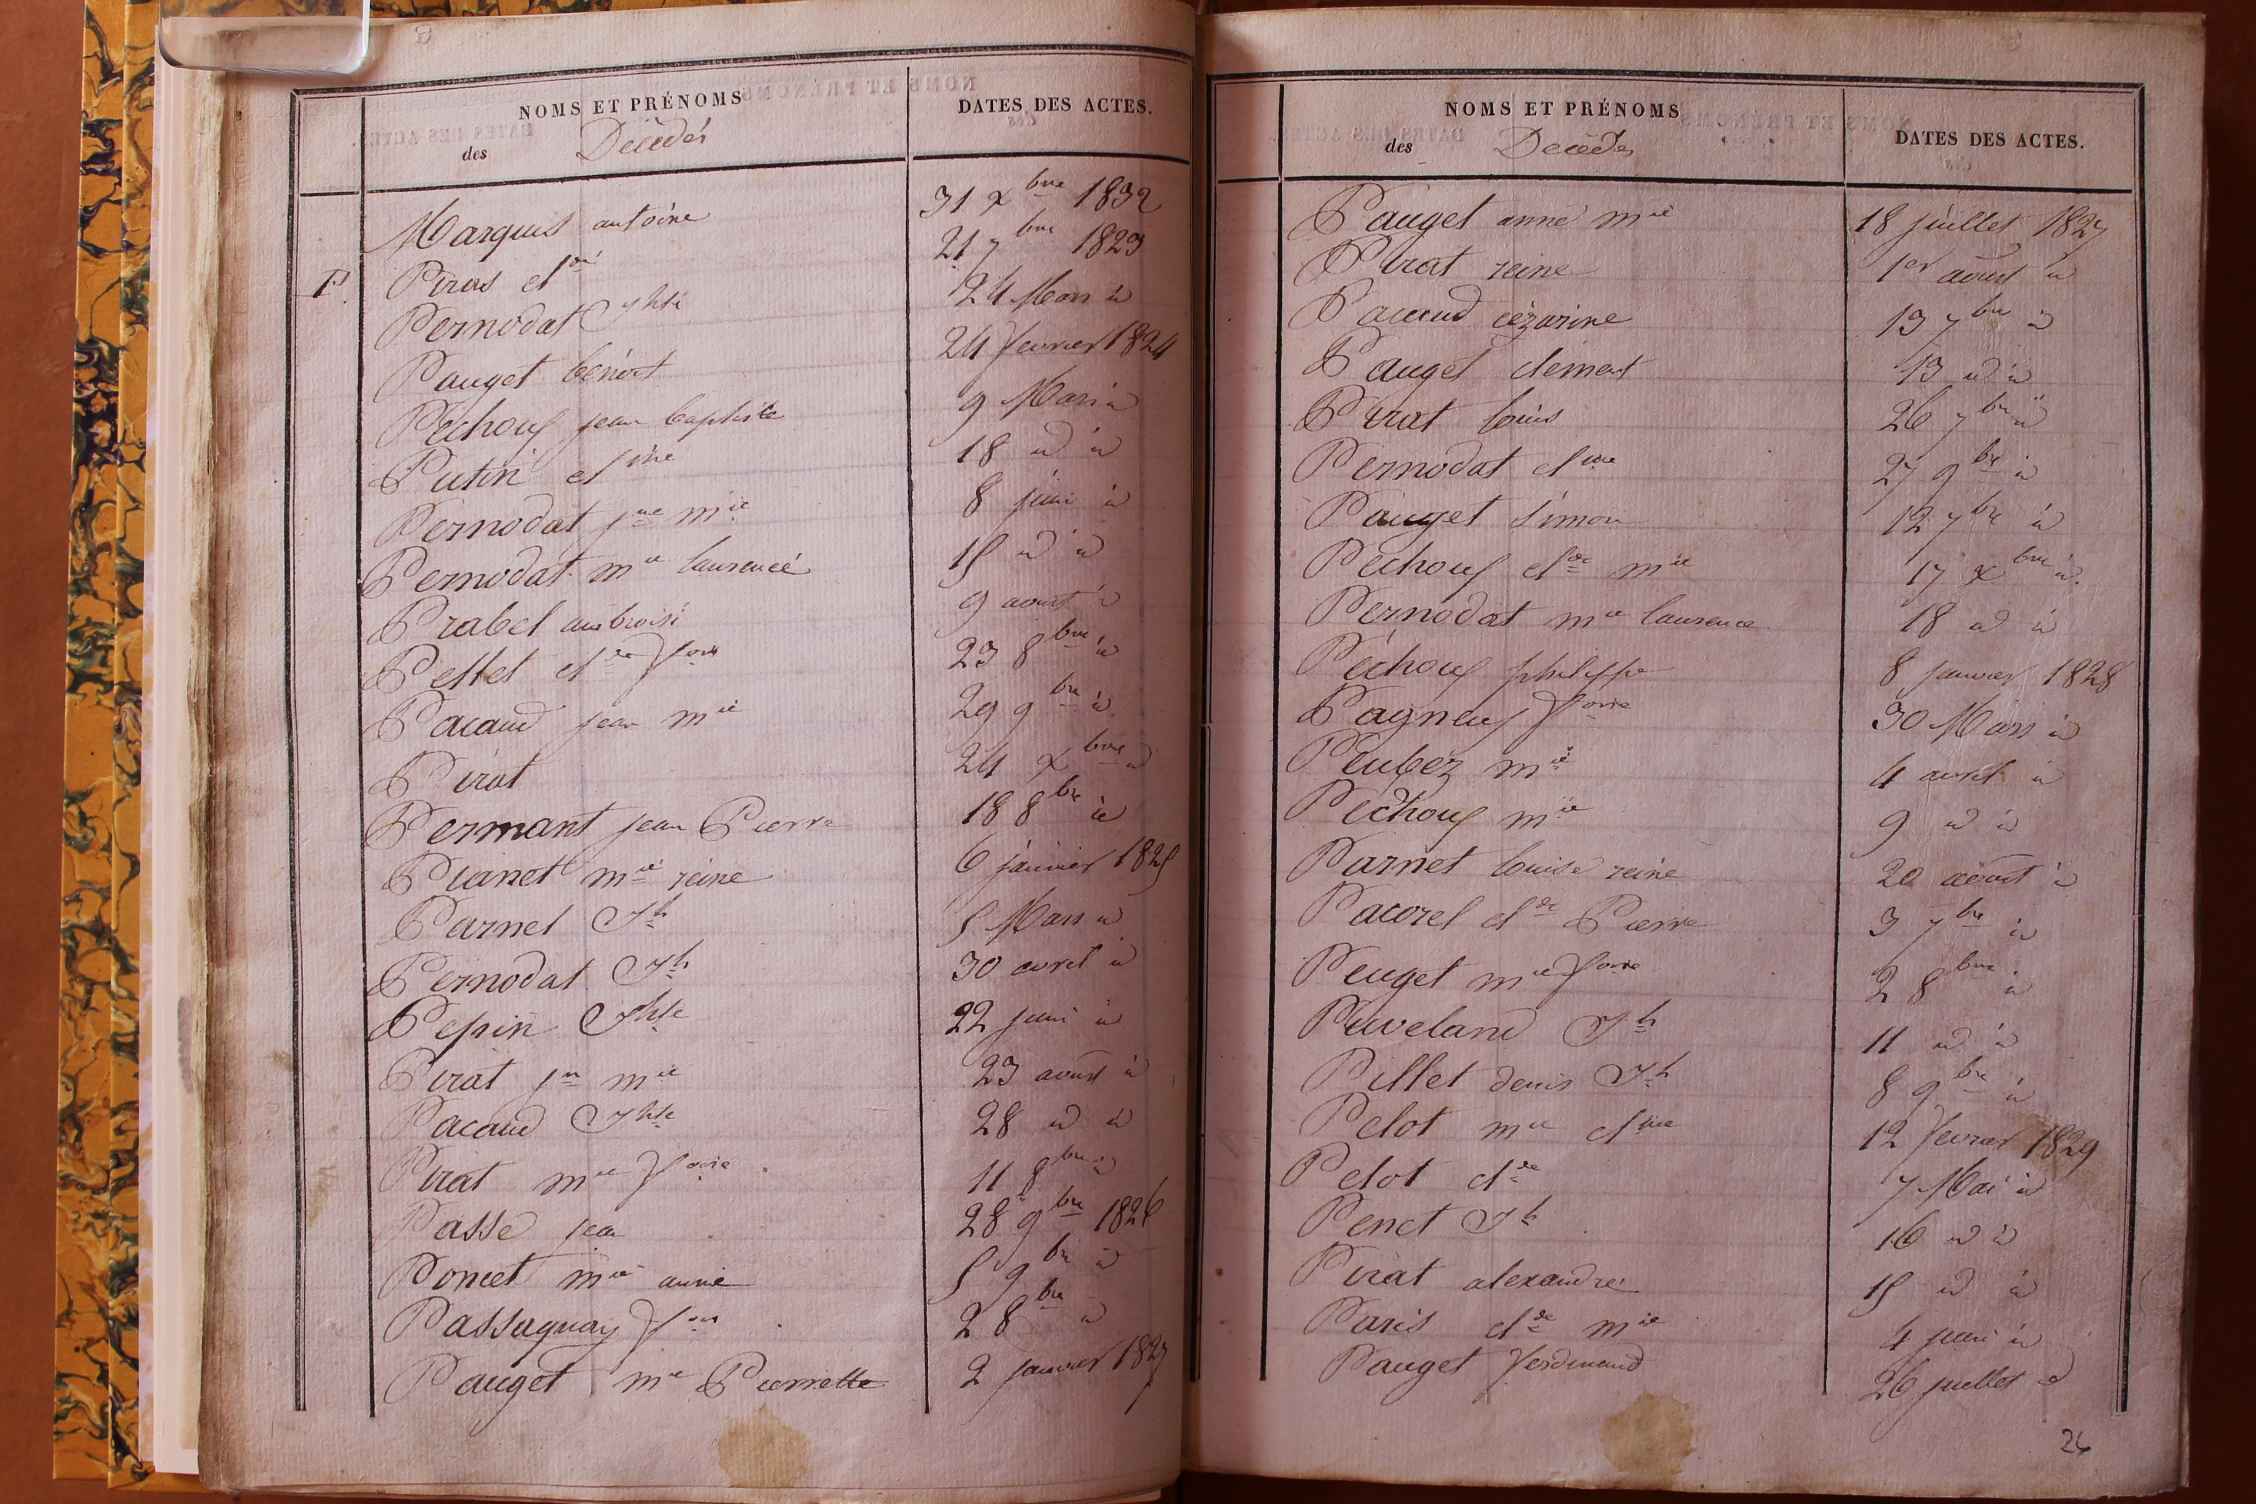 NOMS ET PRÉNOMS DATES DES ACTES.
des Décédés
Marquis antoine 31 xbre 1832
P. Piras clde 21 7bre 1823
Pernodat Jhte 24 Mars id
Pauget bénoit 24 fevrier 1824
Péchoux jean baptiste 9 Mars id
Putin cline 18 id id
Pernodat jne mie 8 juin id
Pernodat mie laurence 15 id id
Prabel ambroise 9 aoust id
Pellet clde fois 23 8bre id
Pacaud jean mie 29 9bre id
Pirat 24 xbre id
Permant jean Pierre 18 8bre id
Pianet mie reine 6 janvier 1825
Parnet Jh 5 Mars id
Pernodat Jh 30 avril id
Pepin Jhte 22 juin id
Pirat jn mie 23 aoust id
Pacaud Jhte 28 id id
Pirat mie foise 11 8bre id
Passe jean 28 9bre 1826
Poncet mie anne 5 9bre id
Passaquay fois 2 8bre id
Pauget mie Pierrette 2 janvier 1827
NOMS ET PRÉNOMS DATES DES ACTES.
des Décédés
Pauget anne mie 18 juillet 1827
Pirat reine 1er aoust id
Pacaud cézarine 13 7bre id
Pauget clément 13 id id
Pirat louis 26 7bre id
Pernodat cline 27 9bre id
Pauget simon 12 7bre id
Péchoux clde mie 17 xbre id
Pernodat mie laurence 18 id id
Péchoux philippe 8 janvier 1828
Pagneux foise 30 Mars id
Peubez mie 4 avril id
Péchoux mie 9 id id
Parnet louise reine 20 aoust id
Pacorel clde Pierre 3 7bre id
Peuget mie foise 2 8bre id
Puveland Jh 11 id id
Pillet denis Jh 8 9bre id
Pelot mie cline 12 fevrier 1829
Pelot clde 7 Mai id
Penet Jh 16 id id
Pirat alexandre 15 id id
Paris clde mie 4 juin id
Pauget ferdinand 26 juillet id
24